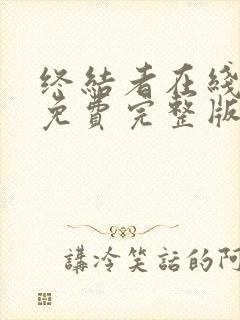 终结者在线
免費完整版
講冷笑話的阿